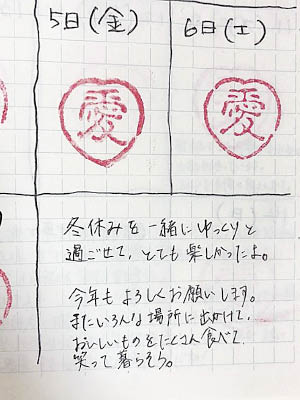 5日(金)
6日(土)
愛
愛
冬休みを一緒にゆっくりと
過ごせて、とても楽しかったよ。
今年もよろしくお願いします。
またいろんな場所に出かけて、
おいしいものをたくさん食べて、
笑って暮らそう。